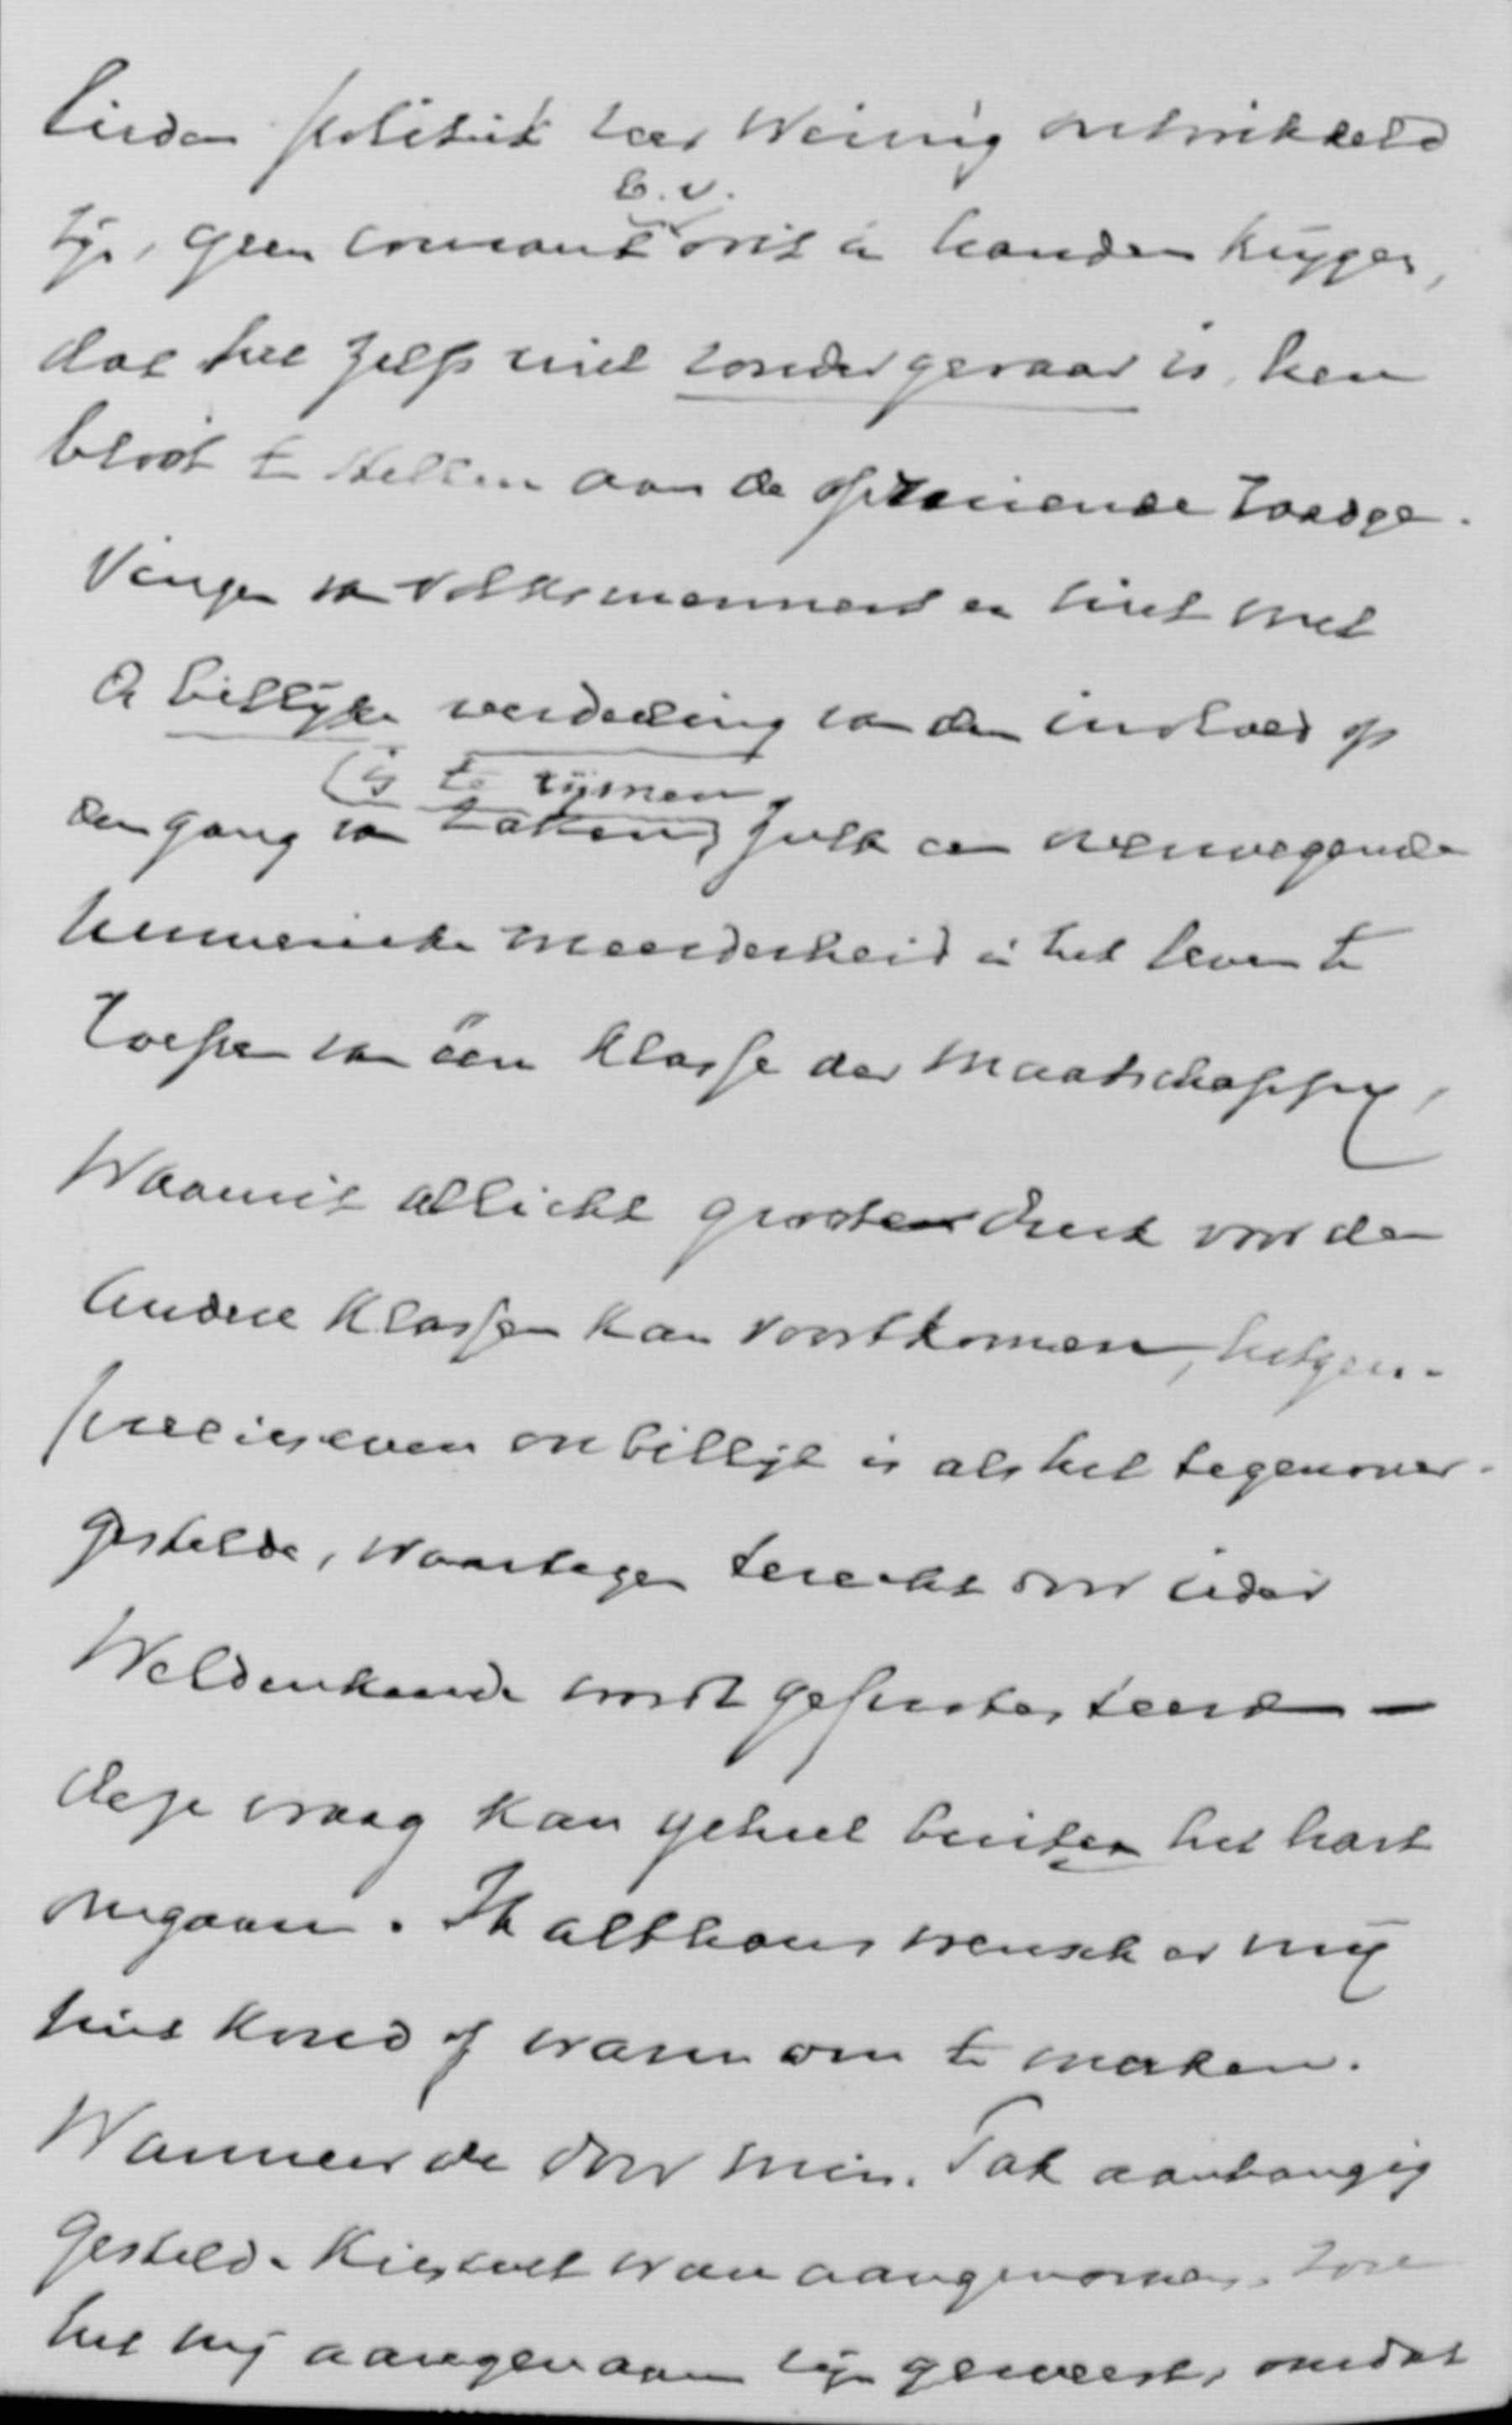 lieden politiek zeer weinig ontwikkeld
b.v.
zijn, geen courant ooit in handen krijgen,
dat het zelfs niet zonder gevaar is, hen
bloot te stellen aan de opruiende raadge-
vingen van volksmenners en niet met
de billijke verdeeling van den invloed op
is te rijmen,
den gang van zaken, zulk een overwegende
numerieke meerderheid in het leven te
roepen van één klasse der maatschappij,
waaruit allicht groote druk voor de
andere klassen kan voortkomen, hetgeen
precies even onbillijk is als het tegenover-
gestelde, waartegen terecht door ieder
weldenkende wordt geprotesteerd —
deze vraag kan geheel buiten het hart
omgaan. Ik althans wensch er mij
niet koud of warm om te maken.
Wanneer de door min. Tak aanhangig
gestelde kieswet ware aangenomen, zou
het mij aangenaam zijn geweest, omdat